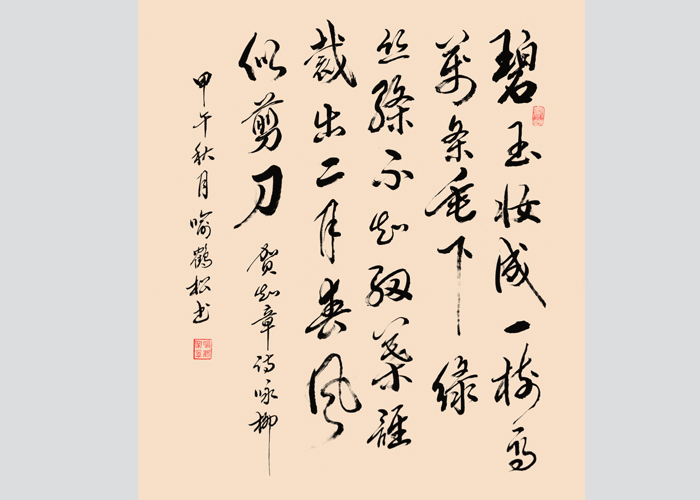 碧玉妆成一树高
萬条垂下绿
丝絛不知细葉誰
裁出二月春风
似剪刀 賀知章诗咏柳
甲午秋月喻鶴松书